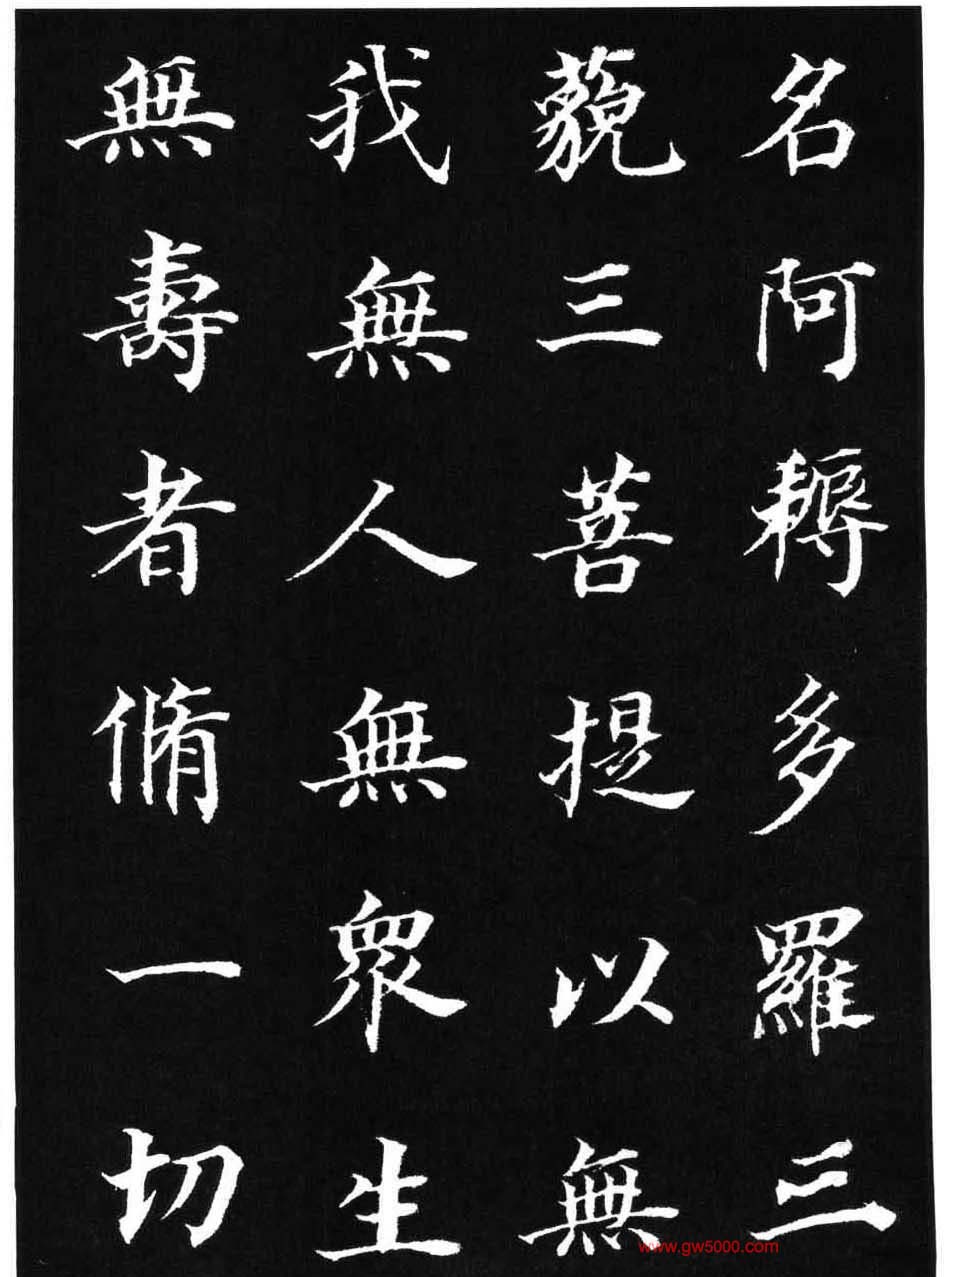 名阿耨多羅三
藐三菩提以無
我無人無衆生
無壽者脩一切
www.gw5000.com